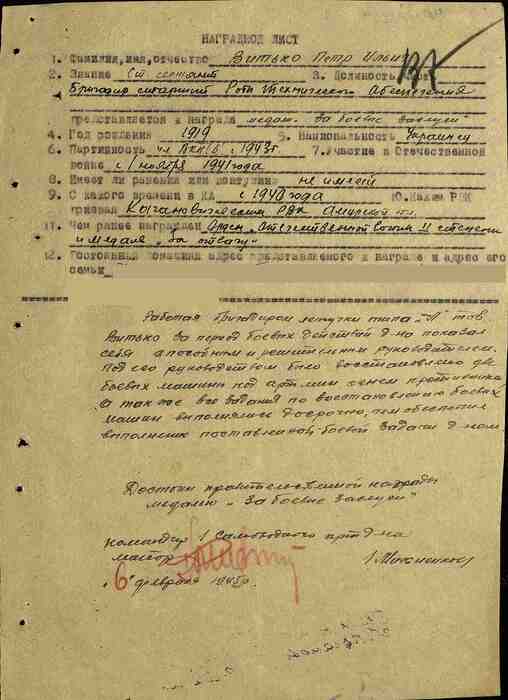 НАГРАДНОЙ ЛИСТ
1. Фамилия, имя, отчество Витько Петр Ильич
2. Звание Ст сержант 3. Должность
Бригадир слесарей Роты Технического Обеспечения
представляется к награде медаль "За боевые заслуги"
4. Год рождения 1919 5. Национальность Украинец
6. Партийность чл ВКП(б) с 1943г 7. Участие в Отечественной
войне с 1 ноября 1941 года
8. Имеет ли ранения или контузии не имеет
9. С какого времени в КА с 1940 года 10. Каким РВК
призван Кагановическим РВК Амурской обл.
11. Чем ранее награжден Орден "Отечественной Войны II степени
и медаль "За отвагу"
12. Постоянный домашний адрес представляемого к награде и адрес его
семьи
Работая бригадиром летучки типа "А" тов.
Витько за период боевых действий д-на показал
себя спокойным и решительным руководителем.
Под его руководством было восстановлено две
боевых машины под арт. мин огнем противника
а так же все задания по восстановлению боевых
машин выполнялись досрочно, чем обеспечил
выполнение поставленной боевой задачи д-ном
Достоин правительственной награды
медаль "За боевые заслуги"
Командир 1 Самоходного арт д-на
майор
"6" февраля 1945г.